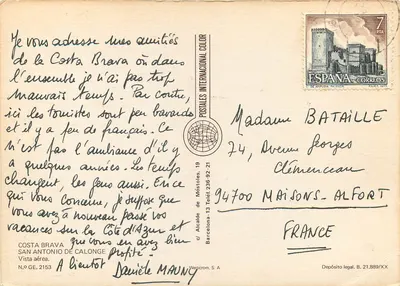 Je vous adresse mes amitiés
de la Costa Brava où dans
l'ensemble je n'ai pas trop
mauvais temps. Par contre,
ici les touristes sont peu bavards
et il y a peu de français. Ce
n'est pas l'ambiance d'il y
a quelques années. Les temps
changent, les gens aussi. En ce
qui vous concerne, je suppose que
vous avez à nouveau passé vos
vacances sur la Côte d'Azur et
que vous en avez bien
profité.
A bientôt Danièle MAUNY
COSTA BRAVA
SAN ANTONIO DE CALONGE
Vista aérea.
N.º GE. 2153
POSTALES INTERNACIONAL COLOR
c/ Alcalde de Móstoles, 19
Barcelona-13 Telef. 236 92 21
S. A.
7
PTA
ESPAÑA
CORREOS
Madame BATAILLE
74, Avenue Georges
Clémenceau
94700 MAISONS-ALFORT
FRANCE
Depósito legal B. 21.999/XX